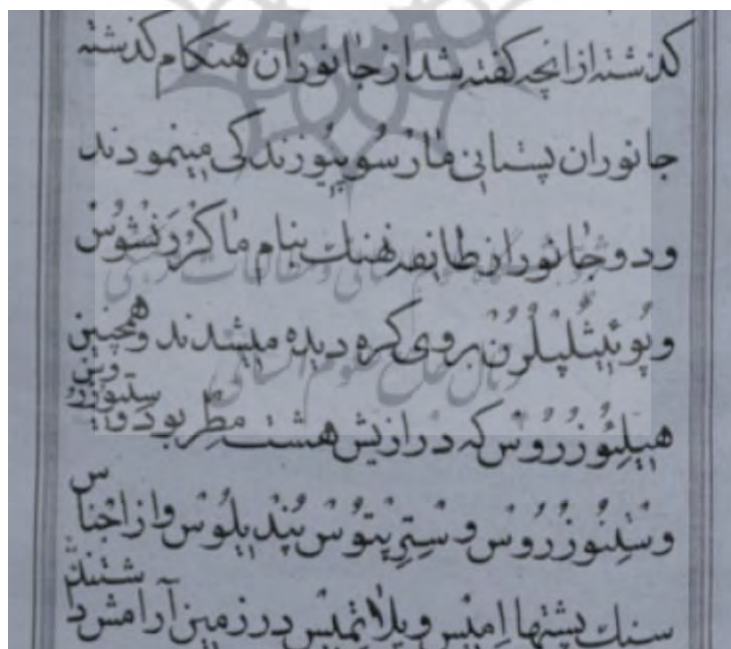 کذشته از انچه کفته شد از جانوران هنکام کذشته
جانوران پستانی مارسوپیو زندکی مینمودند
و دو جانور از طائفه نهنك بنام ماکرُرَنشوس
و پوئیثُلپلرُن بروی کره دیده میشدند وهمچنین
هیلئوزُرُوس که درازیش هشت مطر بود و
وستلنوزُرُوس و ستریپتوس پُندیلوس و از اجناس
سنك پشتها اِمیس و پلاتمیس در زمین آرامش داشتند